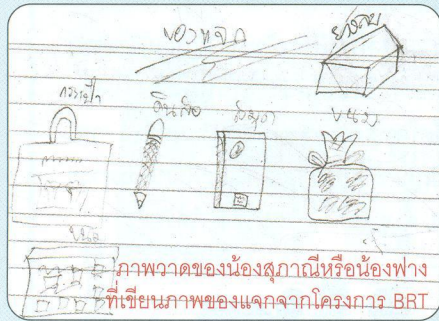 ของแจก
ยางลบ
กระเป๋า
ดินสอ
สมุด
ขนม
ภาพวาดของน้องสุภาณีหรือน้องฟาง
ที่เขียนภาพของแจกจากโครงการ BRT